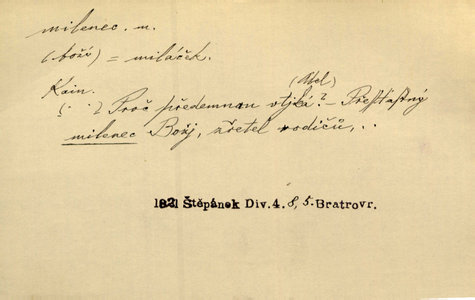 milenec. m.
(boží) = miláček.
Kain.
(Abel)
Proč předemnou utjká? - Přešťastný
milenec Božj, zřetel rodičů, ..
1821 Štěpánek Div. 4. 8, 5. Bratrovr.